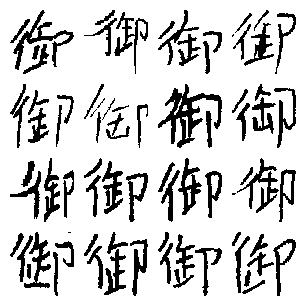 御御御御
御御御御
御御御御
御御御御